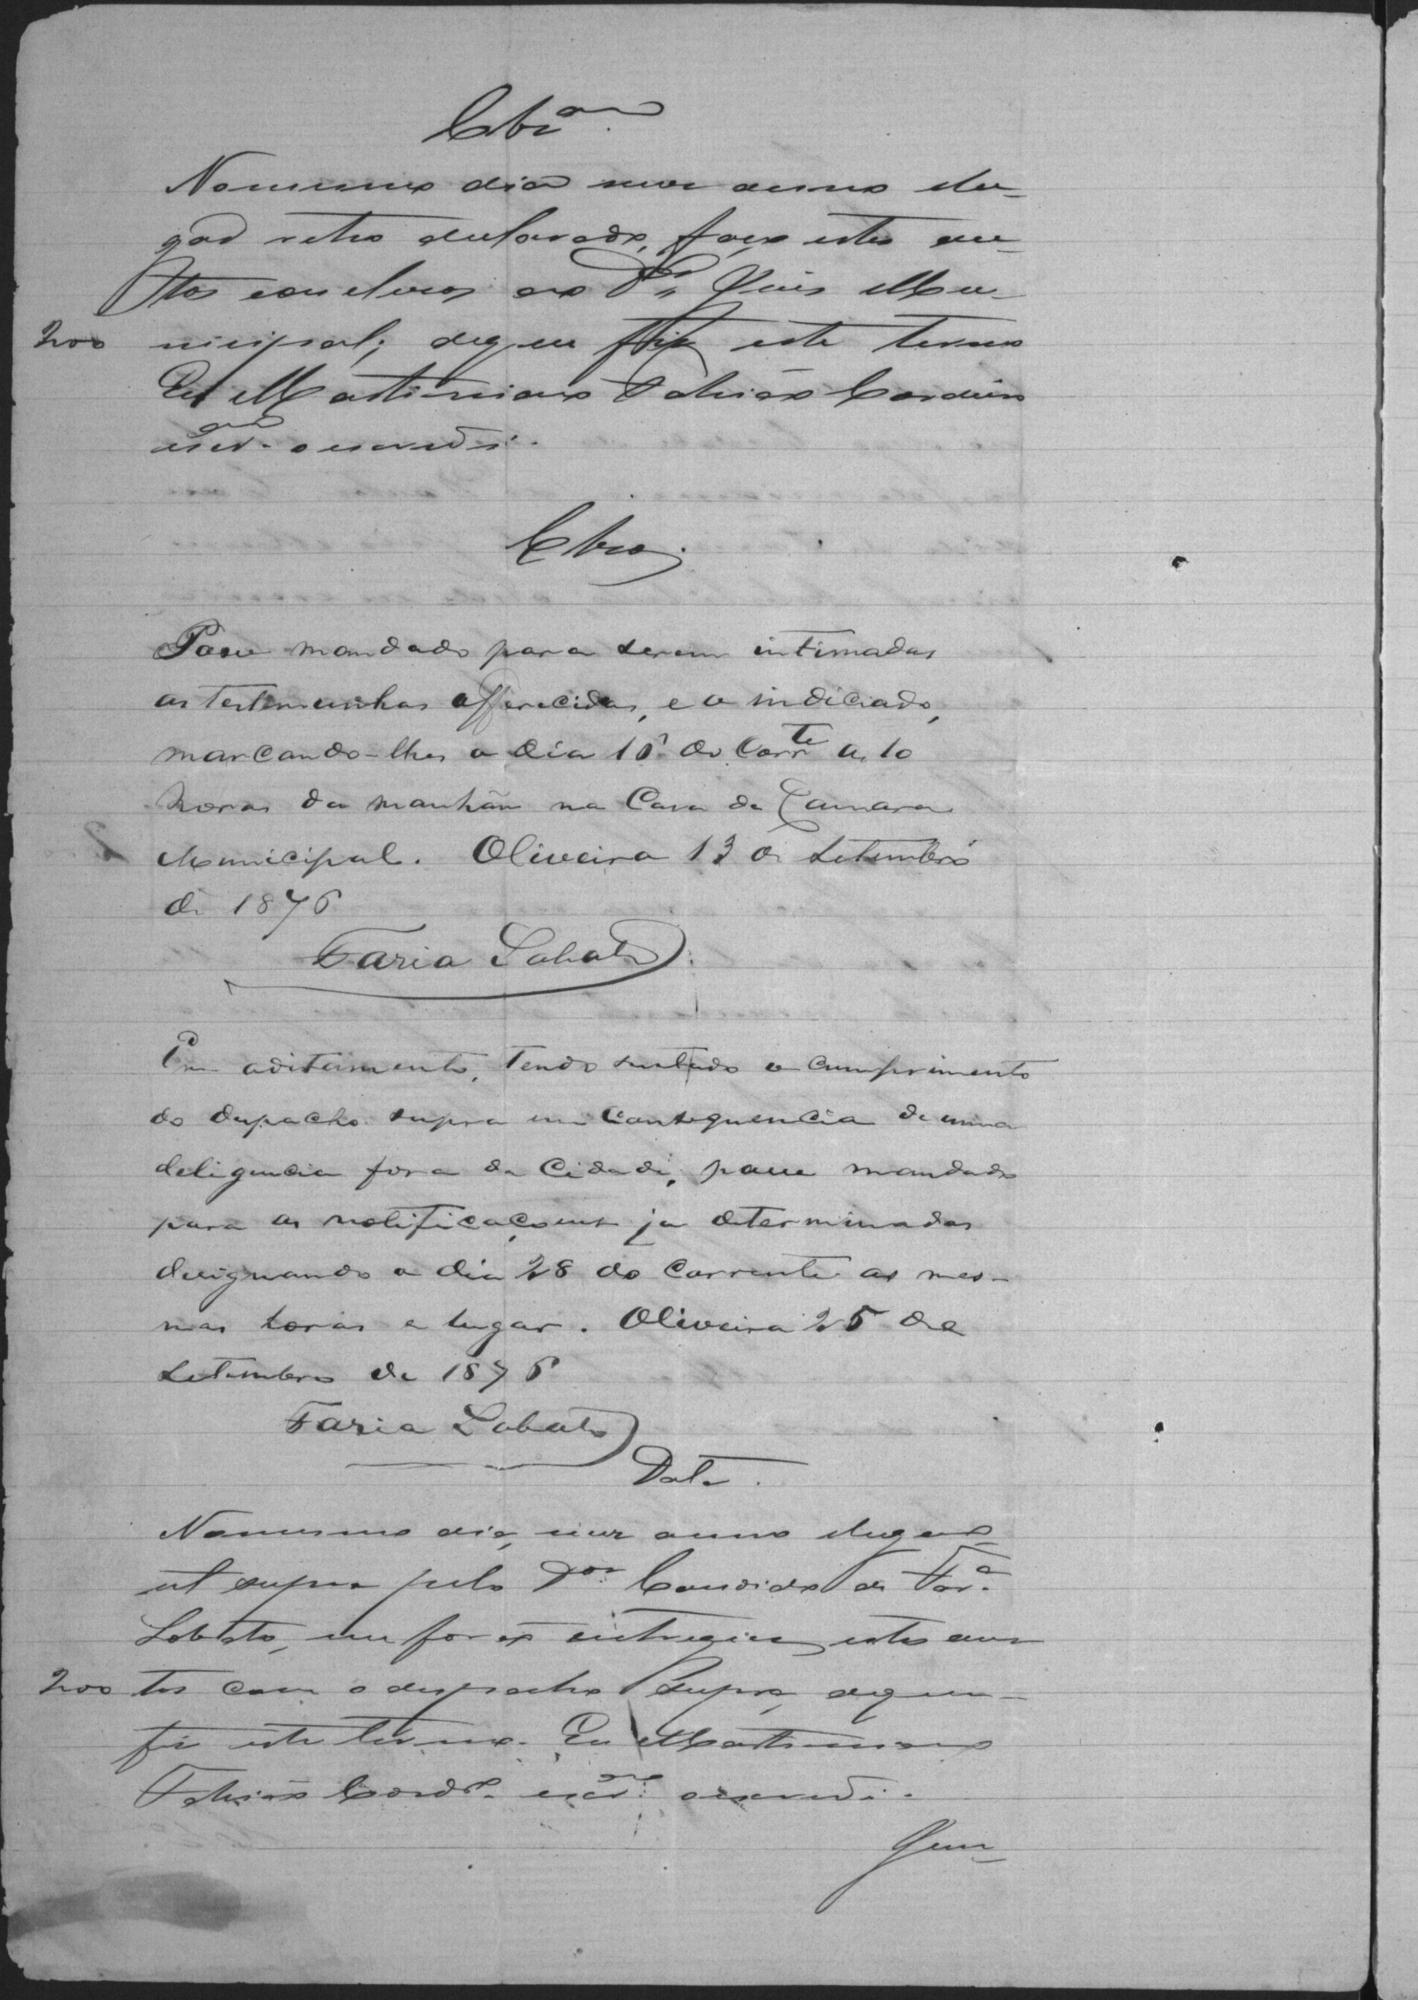 Clsão.
Nomesmo dia mez anno elu-
gar retro declarado, faço estes au-
tos conclusos ao Dr. Juis Mu-
200 nicipal; doque fiz este termo
Eu Martiniano Tobias Cordeiro
escram. o escrevi.
Clso.
Passe mandado para serem intimadas
as testemunhas offerecidas, e o indiciado,
marcando-lhes o dia 16 do Corrte as 10
horas da manhãn na Casa da Camara
Municipal. Oliveira 13 de Setembro
de 1876
Faria Lobato
Em aditamento, tendo sustado o cumprimento
do despacho supra em consequencia de uma
deligencia fora da Cidade, passe mandado
para as notificaçoens ja determinadas
designando o dia 28 do corrente as mes-
mas horas e lugar. Oliveira 25 de
Setembro de 1876
Faria Lobato
Data.
Nomesmo dia, mez anno elugar
ut supra pelo Dor Candido de Fara
Lobato, me forão entregues estes au-
200 tos com o despacho supra, doque
fis este termo. Eu Martiniano
Tobias Cordro. escram. oescrevi.
Jun-